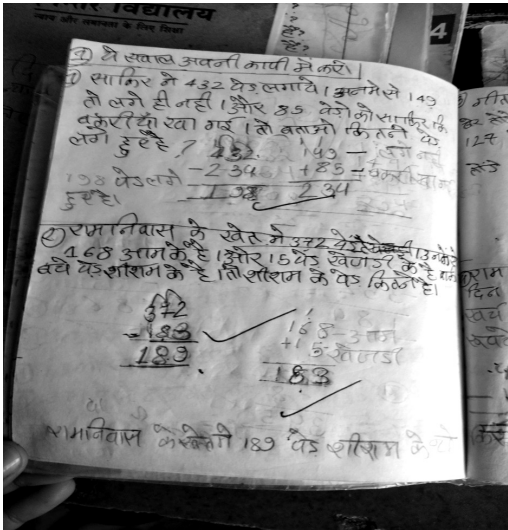 विद्यालय
न्याय और समानता के लिए शिक्षा
4
① ये सवाल अपनी कापी मे करो।
① साकिर ने 432 पेड लगाये। उनमे से 149
तो लगे ही नही। और 85 पेडो को साकिर कि
बकरीयां खा गई। तो बताओ कितने पेड
लगे हुए है?
432 149 - लगे नही
-234 +85 -
198 234
198 पेड लगे
हुए है।
② रामनिवास के खेत मे 372 पेड है। उनमे से
168 आम के है। और 15 पेड खेजडी के है बाकि
बचे पेड श्रीराम के है। तो श्रीराम के पेड कितने है।
372
-183
189
168 - आम
+15 खेजडी
183
रामनिवास के खेत मे 189 पेड श्रीराम के